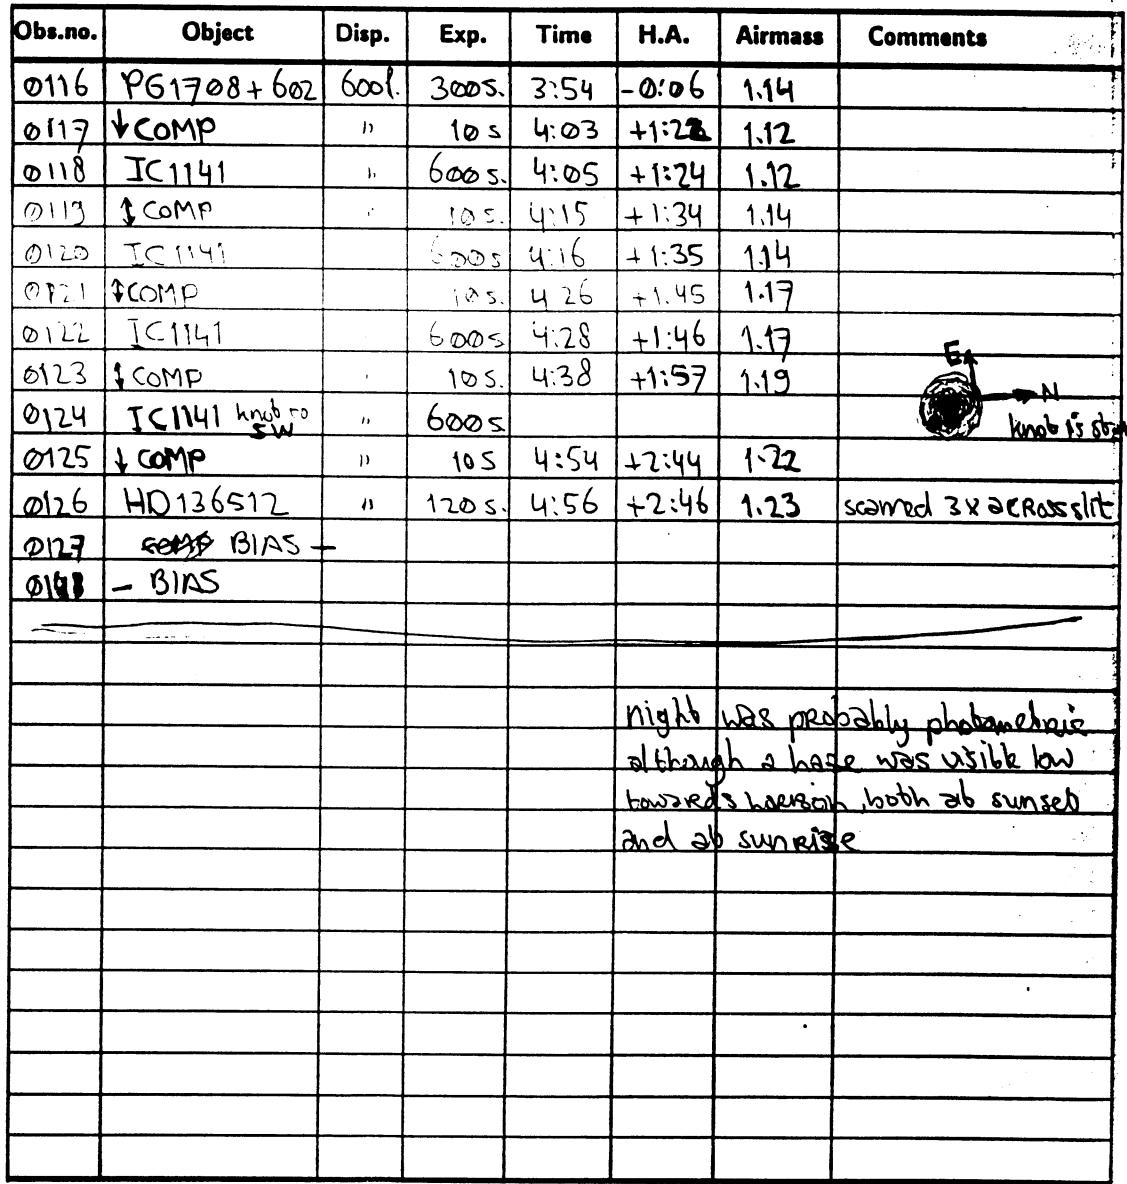 Obs.no. Object Disp. Exp. Time H.A. Airmass Comments
0116 PG1708+602 600l. 300s. 3:54 -0:06 1.14
0117 ↓COMP " 10s 4:03 +1:22 1.12
0118 IC1141 " 600s. 4:05 +1:24 1.12
0119 ↕COMP " 10s. 4:15 +1:34 1.14
0120 IC1141 600s 4:16 +1:35 1.14
0121 ↕COMP 10s. 4 26 +1.45 1.17
0122 IC1141 600s 4:28 +1:46 1.17
0123 ↕COMP 10s. 4:38 +1:57 1.19
E
N
0124 IC1141 knob to SW " 600s knob is star
0125 ↓ COMP " 10s 4:54 +2:44 1.22
0126 HD136512 " 120s. 4:56 +2:46 1.23 scanned 3x across slit
0127 BIAS —
— BIAS
night was probably photometric
although a haze was visible low
towards horizon, both at sunset
and at sunrise